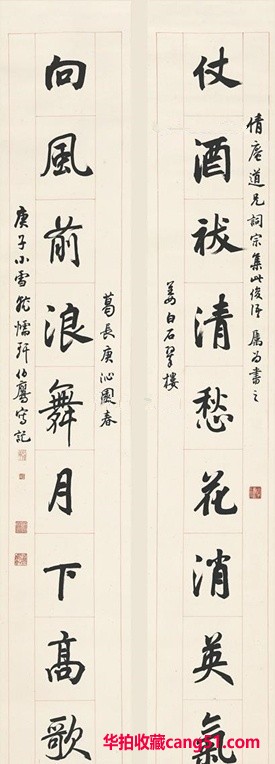 倩庵道兄詞宗集此俊語屬為書之
仗酒祓清愁花消英氣
姜白石翠樓
葛長庚沁園春
向風前浪舞月下高歌
庚子小雪伯鷹寫記
华拍收藏cang51.com